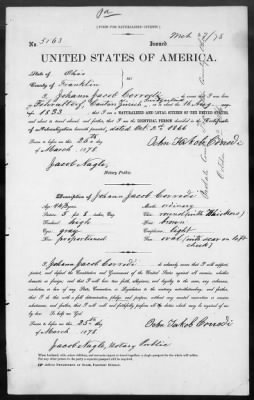 [FORM FOR NATURALIZED CITIZEN]
No. 5163 Issued Mch 27/78
UNITED STATES OF AMERICA.
State of Ohio
County of Franklin
I, Johann Jacob Corrodi
Canton Zurich, Switzerland on the 16 Aug
1833, that I am a NATURALIZED AND LOYAL CITIZEN OF THE UNITED STATES,
and about to travel abroad; and further, that I am the IDENTICAL PERSON described in the Certificate
of Naturalization herewith presented, dated Oct. 2nd 1866
Sworn to before me this 25th day
of March 1878
Joh. Jakob Corrodi
Jacob Nagle,
Notary Public
Description of Johann Jacob Corrodi
Age: 44 Years
Mouth: ordinary
Stature: 5 feet 8 inches, Eng.
Chin: round (with Whiskers)
Forehead: high
Hair: brown
Eyes: gray
Complexion: light
Nose: proportioned
Face: oval (with scar on left cheek)
I, Johann Jacob Corrodi do solemnly swear that I will support,
protect, and defend the Constitution and Government of the United States against all enemies, whether
domestic or foreign; and that I will bear true faith, allegiance, and loyalty to the same, any ordinance,
resolution, or law of any State, Convention, or Legislature to the contrary notwithstanding; and further,
that I do this with a full determination, pledge, and purpose, without any mental reservation or evasion
whatsoever; and further, that I will well and faithfully perform all the duties which may be required of me
by law. So help me God.
Sworn to before me this 25th day
of March 1878
Joh. Jakob Corrodi
Jacob Nagle, Notary Public